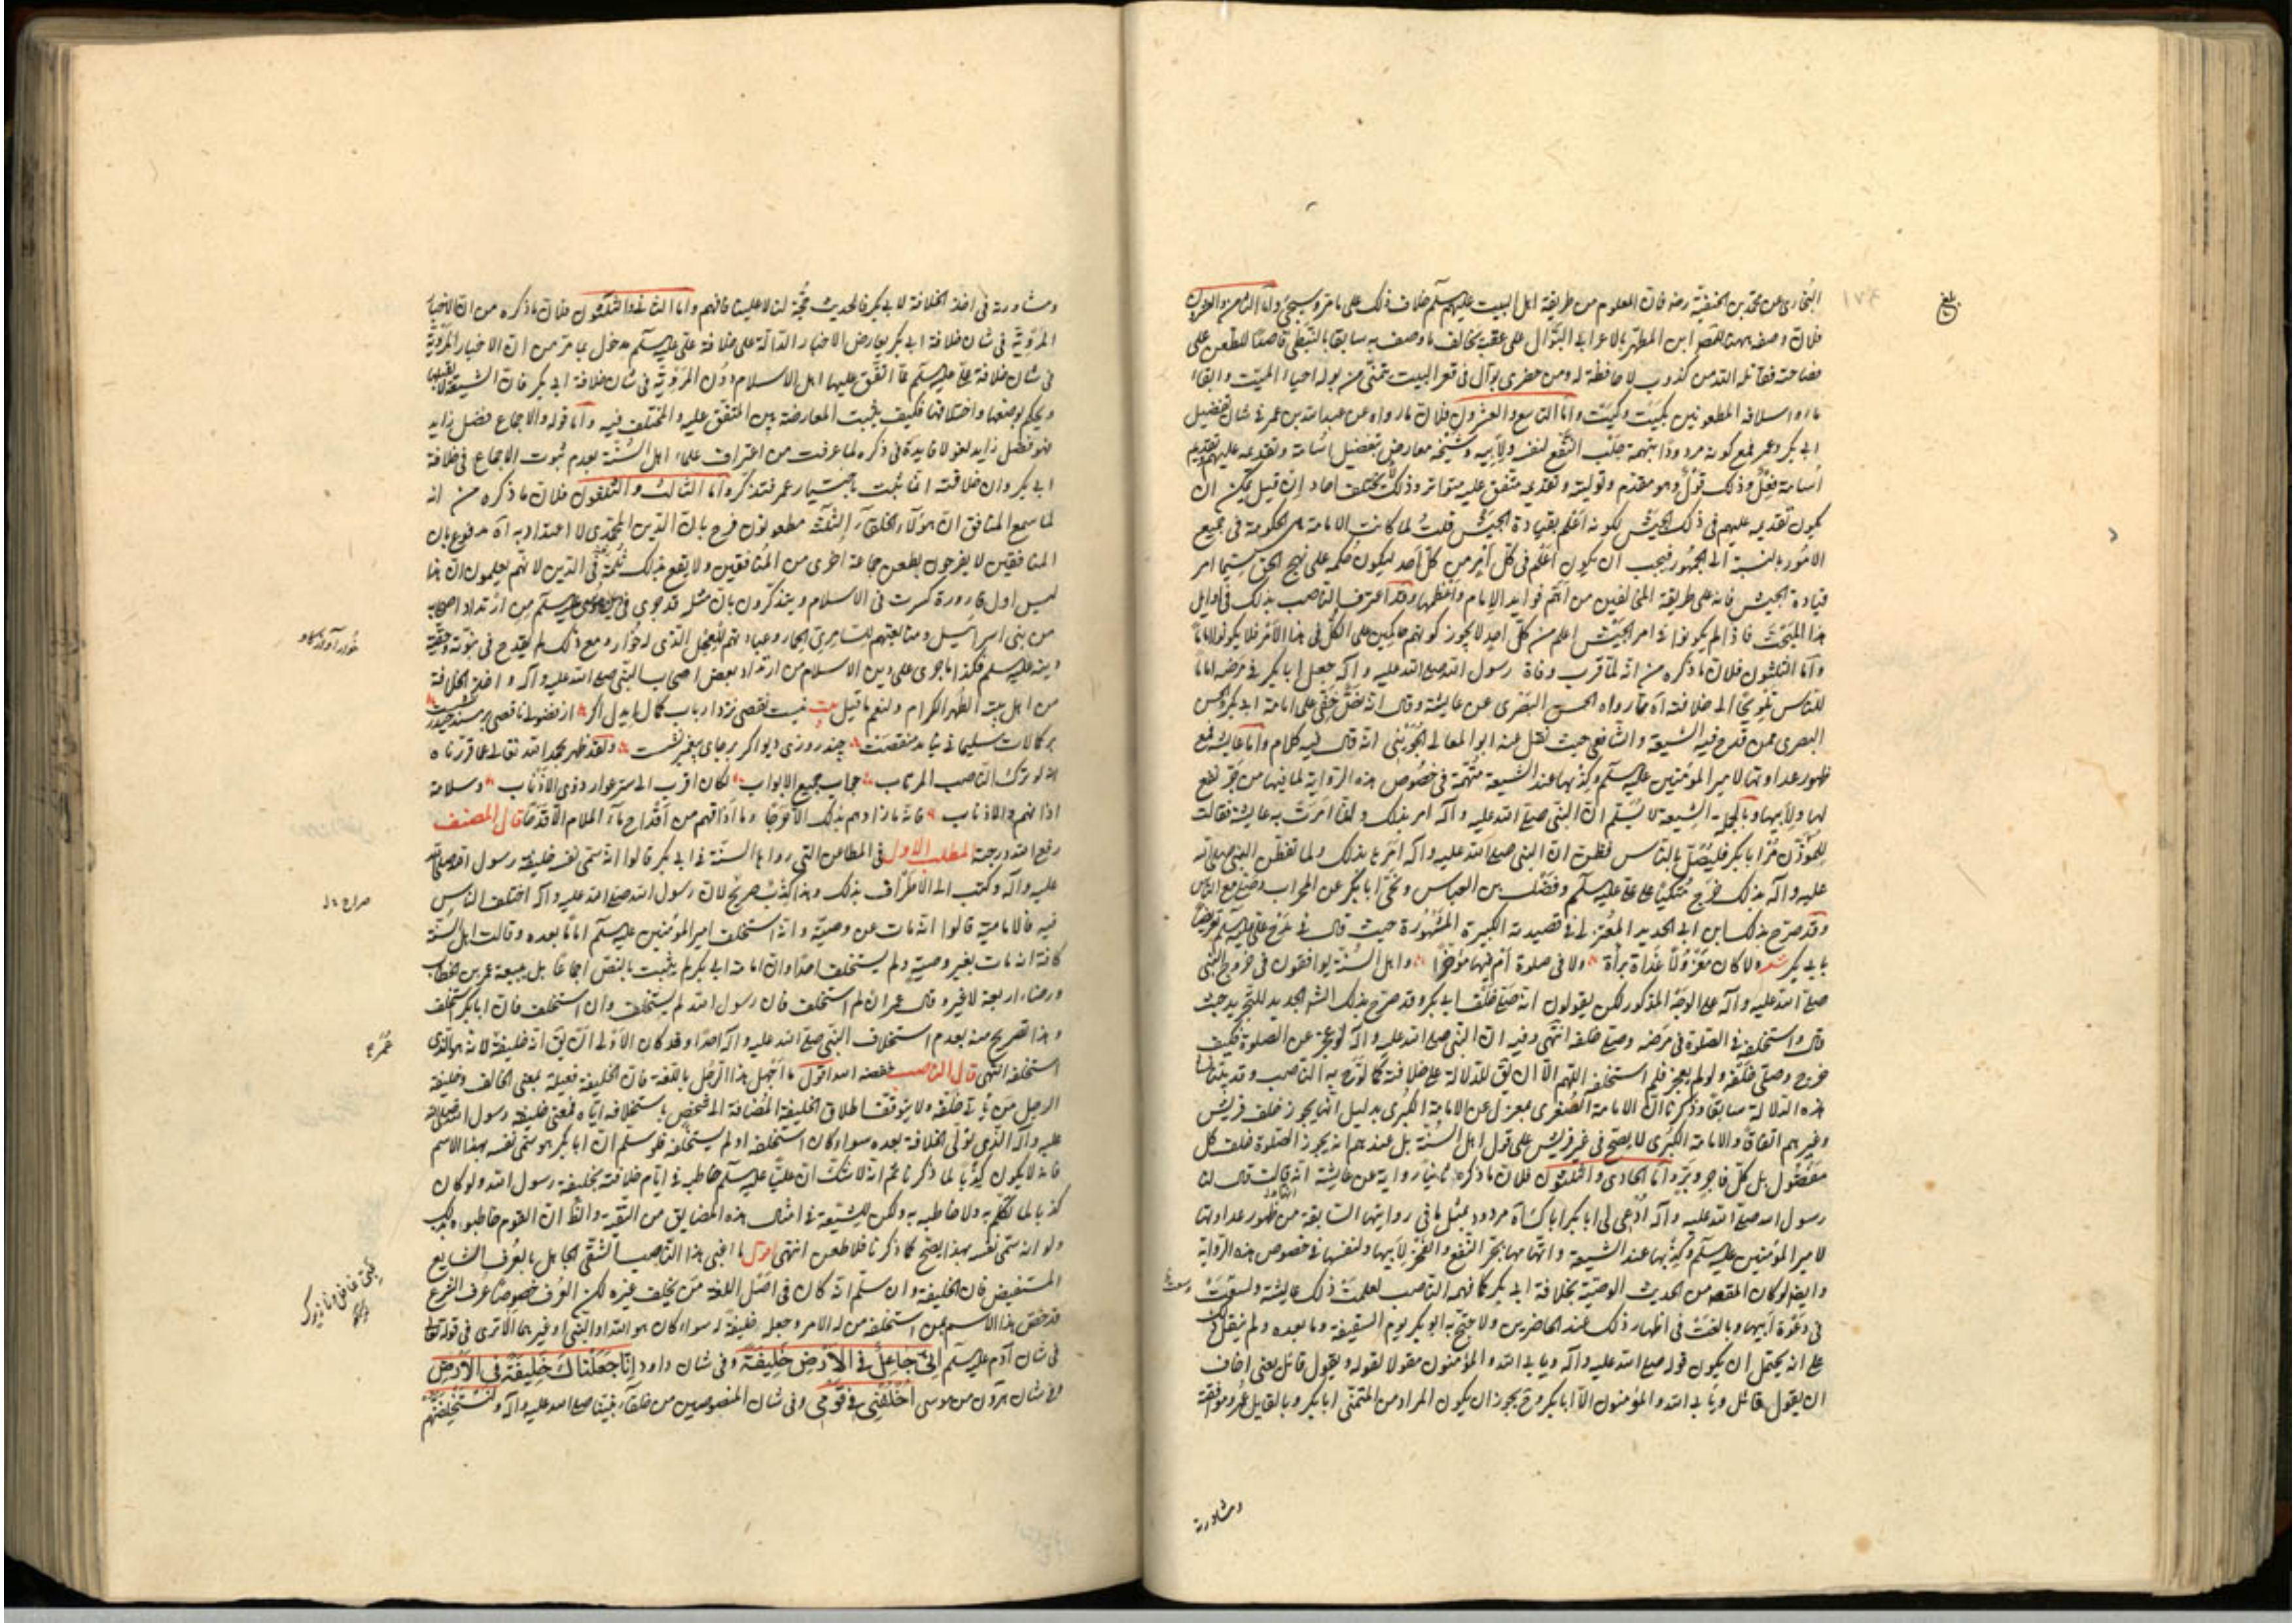 البخاری عن محمد بن الحنفیّة رضه فان المعلوم من طریقة اهل البیت علیهم السلم خلاف ذلک علی ما مر وسیجیٔ واما الثامن والعشرون
فلان وصفه ههنا للمص ابن المطهر بالاعرابی البوّال علی عقبیه یخالف ما وصفه به سابقا بالنبطی قاصدًا للطعن علی
فصاحته فقاتله الله من کذوب لا حافظة له ومن حضری بوّال فی قعر البیت یتمنّی من بوله احیاء المیت وابقاء
ماء اسلافه المطعونین بکیت وکیت واما التاسع والعشرون فلان ما رواه عن عبد الله بن عمر فی شان تفضیل
ابی بکر وعمر فمع کونه مردودًا بتهمة جلب النفع لنفسه ولابیه وشیخه معارض بتفضیل اسامة وتقدیمه علیهم
اُسامة فِعْلٌ وذلک قَوْلٌ وهو مقدم وتولیته وتقدیمه متفق علیه متواتر وذلک مختلف احاد ان قیل یمکن ان
یکون تقدیمه علیهم فی ذلک الجیش لکونه اعلم بقیادة الجیش قلتُ لما کانت الامامة هی الحکومة فی جمیع
الامور بالنسبة الی الجمهور فیجب ان یکون اعلم فی کلّ امر من کلّ احد لیکون حکمه علی نهج الحق سیّما امر
قیادة الجیش فانه علی طریقة المخالفین من اهمّ فواید الامام واعظمها وقد اعترف الناصب بذلک فی اوایل
هذا المبحث فاذا لم یکونوا فی امر الجیش اعلم من کلّ احد لا یجوز کونهم حاکمین علی الکلّ فی هذا الامر فلا یکونوا امامًا
واما الثلثون فلان ما ذکره من انه لما قرب وفاة رسول الله صلی الله علیه وآله جعل ابا بکر فی مرضه امامًا
للناس تلویحًا الی خلافته آه مما رواه الحسن البصری عن عایشة وقال انه نصّ خفی علی امامة ابی بکر والحسن
البصری ممن قدح فیه الشیعة والشافعی حیث نقل عنه ابو المعالی الجوینی انه قال فیه کلام واما عایشة فمع
ظهور عداوتها لامیر المؤمنین علیه السلم وکذبها عند الشیعة متهمة فی خصوص هذه الروایة لما فیها من جرّ نفع
لها ولابیها وبالجملة الشیعة لا یسلّم انّ النبی صلی الله علیه وآله امر بذلک وانما امرت به عایشة فقالت
للمؤذن مُرْ ابا بکر فلیُصلّ بالناس فظن ان النبی صلی الله علیه وآله امره بذلک ولما تفطّن النبی صلی الله
علیه وآله بذلک خرج متکیًا علی علیّ علیه السلم وفضل بن العباس ونحّی ابا بکر عن المحراب وصلّی مع الناس
وقد صرّح بذلک ابن ابی الحدید المعتزلی فی قصیدته الکبیرة المشهورة حیث قال فی مدح علی علیه السلم تعریضًا
بابی بکر شعر ولا کان معزولًا غداة براءة ولا فی صلوة اَمّ فیها مؤخّرًا واهل السنّة یوافقون فی خروج النبی
صلی الله علیه وآله علی الوجه المذکور لکن یقولون انه صلّی خلف ابی بکر وقد صرّح بذلک الشرح الجدید للتجرید حیث
قال واستخلفه فی الصلوة فی مرضه وصلی خلفه انتهی وفیه انّ النبی صلی الله علیه وآله لو عجز عن الصلوة فکیف
خرج وصلی خلفه ولو لم یعجز فلم استخلفه اللهم الا ان یقال للدلالة علی خلافته کما لوّح به الناصب وقد بیّنا
هذه الدلالة سابقا وذکرنا انّ الامامة الصغری بمعزل عن الامامة الکبری بدلیل انها یجوز خلف قریش
وغیرهم اتفاقًا والامامة الکبری لا یصحّ فی غیر قریش علی قول اهل السنّة بل عندهم انه یجوز الصلوة خلف کل
مفضول بل کلّ فاجر وبرّ واما الحادی والثلثون فلان ما ذکره ثانیًا روایة عن عایشة انه قالت قال لنا
رسول الله صلی الله علیه وآله اُدعی لی ابا بکر اباک آه مردود بمثل ما فی روایتها السابقة من ظهور عداوتها
لامیر المؤمنین علیه السلم وکذبها عند الشیعة واتهامها بجرّ النفع والفخر لابیها ولنفسها فی خصوص هذه الروایة
وایضا لو کان المقصود من الحدیث الوصیّة بخلافة ابی بکر کما فهمه الناصب لعلمت ذلک عایشة ولسعَتْ
فی دعوة ابیها وبالغت فی اظهار ذلک عند الحاضرین ولاحتج به ابو بکر یوم السقیفة وما بعده ولم ینقل ذلک
علی انه یحتمل ان یکون قوله صلی الله علیه وآله ویابی الله والمؤمنون مقولا لقوله ویقول قائل یعنی اخاف
ان یقول قائل ویابی الله والمؤمنون الا ابا بکر وح یجوز ان یکون المراد من المتمنّی ابا بکر وبالقایل عُمر وموافقة
ومشاورة
ومشاورة فی اخذ الخلافة لابی بکر فالحدیث حجّة لنا لا علینا فافهم واما الثانی والثلثون فلان ما ذکره من ان الاخبار
المرویّة فی شان خلافة ابی بکر یعارض الاخبار الدالة علی خلافة علیّ علیه السلم مدخول بما مرّ من ان الاخبار المرویّة
فی شان خلافة علی علیه السلم مما اتفق علیها اهل الاسلام دون المرویّة فی شان خلافة ابی بکر فان الشیعة لا یقبلها
ویحکم بوضعها واختلاقها فکیف یثبت المعارضة بین المتفق علیه والمختلف فیه واما قوله والاجماع فضل زاید
فهو فضل زاید لغو لا فایدة فی ذکره لما عرفت من اعتراف علماء اهل السنّة بعدم ثبوت الاجماع فی خلافة
ابی بکر وان خلافته انما ثبت باختیار عمر فتذکر واما الثالث والثلثون فلان ما ذکره من انه
لما سمع المنافق ان هؤلاء الخلفاء الثلثة مطعونون فرح بان الدین المحمّدی لا اعتداد به آه مدفوع بان
المنافقین لا یفرحون بطعن جماعة اخری من المنافقین ولا یقع بذلک ثلمة فی الدین لانهم یعلمون ان هذا
لیس اول قارورة کسرت فی الاسلام ویتذکرون بان مثله قد جری فی دین موسی علیه السلم من ارتداد اصحابه
من بنی اسرائیل ومتابعتهم للسامری الحمار وعبادتهم للعجل الذی له خُوار ومع ذلک لم یقدح فی نبوّته وحقیّة
دینه علیه السلم فکذا ما جری علی دین الاسلام من ارتداد بعض اصحاب النبی صلی الله علیه وآله واخذ الخلافة
من اهل بیته الطهر الکرام ولنعم ما قیل بیت نیست نقصی نزد ارباب کمال ای بدل اکر از فضولی ناقصی بر مسند حیدر نشست
بر کمالات سلیمانی نیامد منقصت چند روزی دیو اکر بر جای پیغمبر نشست ولقد ظهر بحمد الله تعالی مما قررناه
انه لو ترک الناصب المرتاب حجاب جمیع الابواب لکان اقرب الی ستر عوار ذوی الاذناب وسلامة
اذانهم والاذناب فانه ما زادهم بذلک الا حرجًا وما اذاقهم من اقداح ماء الملام الا قدحًا قال المصنف
رفع الله درجته المطلب الاول فی المطاعن التی رواها السنة فی ابی بکر قالوا انه سمّی نفسه خلیفة رسول الله صلی الله
علیه وآله وکتب الی الاطراف بذلک وهذا کذبٌ صریحٌ لان رسول الله صلی الله علیه وآله اختلف الناس
فیه فالامامیة قالوا انه مات عن وصیّة وانه استخلف امیر المؤمنین علیه السلم امامًا بعده وقالت اهل السنّة
کافة انه مات بغیر وصیة ولم یستخلف احدا وان امامة ابی بکر لم یثبت بالنصّ اجماعا بل ببیعة عمر بن الخطاب
ورضاء اربعة لا غیر وقال عمر ان لم استخلف فان رسول الله لم یستخلف وان استخلف فان ابا بکر استخلف
وهذا تصریح منه بعدم استخلاف النبی صلی الله علیه وآله احدًا وقد کان الاولی ان یق انه خلیفة لانه هو الذی
استخلفه انتهی قال الناصب خفضه الله اقول ما اجهل هذا الرجل باللغة فان الخلیفة فعیلة بمعنی الخالف وخلیفة
الرجل من یأتی خلفه ولا یتوقف اطلاق الخلیفة المضافة الی شخص باستخلافه ایّاه فمعنی خلیفة رسول الله صلی الله
علیه وآله الذی تولی الخلافة بعده سواء کان استخلفه او لم یستخلفه فلو سلم ان ابا بکر هو سمّی نفسه بهذا الاسم
فانه لا یکون کذبًا لما ذکرنا ثم انه لا شک ان علیًّا علیه السلم خاطبه فی ایّام خلافته بخلیفة رسول الله ولو کان
کذبا لما تکلم به ولا خاطبه به ولکن للشیعة فی امثال هذه المضایق من التقیة والظ ان القوم خاطبوه بذلک
ولو انه سمّی نفسه بهذا یصحّ کما ذکرنا فلا طعن انتهی اقول ما اغبی هذا الناصب الشقی الجاهل بالعُرف الشایع
المستفیض فان الخلیفة وان سلم انه کان فی اصل اللغة من یخلف غیره لکن العُرف خصوصًا عُرف الشرع
قد خصّ هذا الاسم بمن استخلفه من له الامر وجعله خلیفة له سواء کان هو الله او النبی او غیرهما الا تری فی قوله تعالی
فی شان آدم علیه السلم اِنِّی جَاعِلٌ فِی الاَرْضِ خَلِیفَة وفی شان داود اِنَّا جَعَلْنَاکَ خَلِیفَةً فِی الاَرْضِ
وفی شان هرون من موسی اُخْلُفْنِی فِی قَوْمِی وفی شان المنصوصین من خلفاء نبیّنا صلی الله علیه وآله ولَیَسْتَخْلِفَنَّهُم